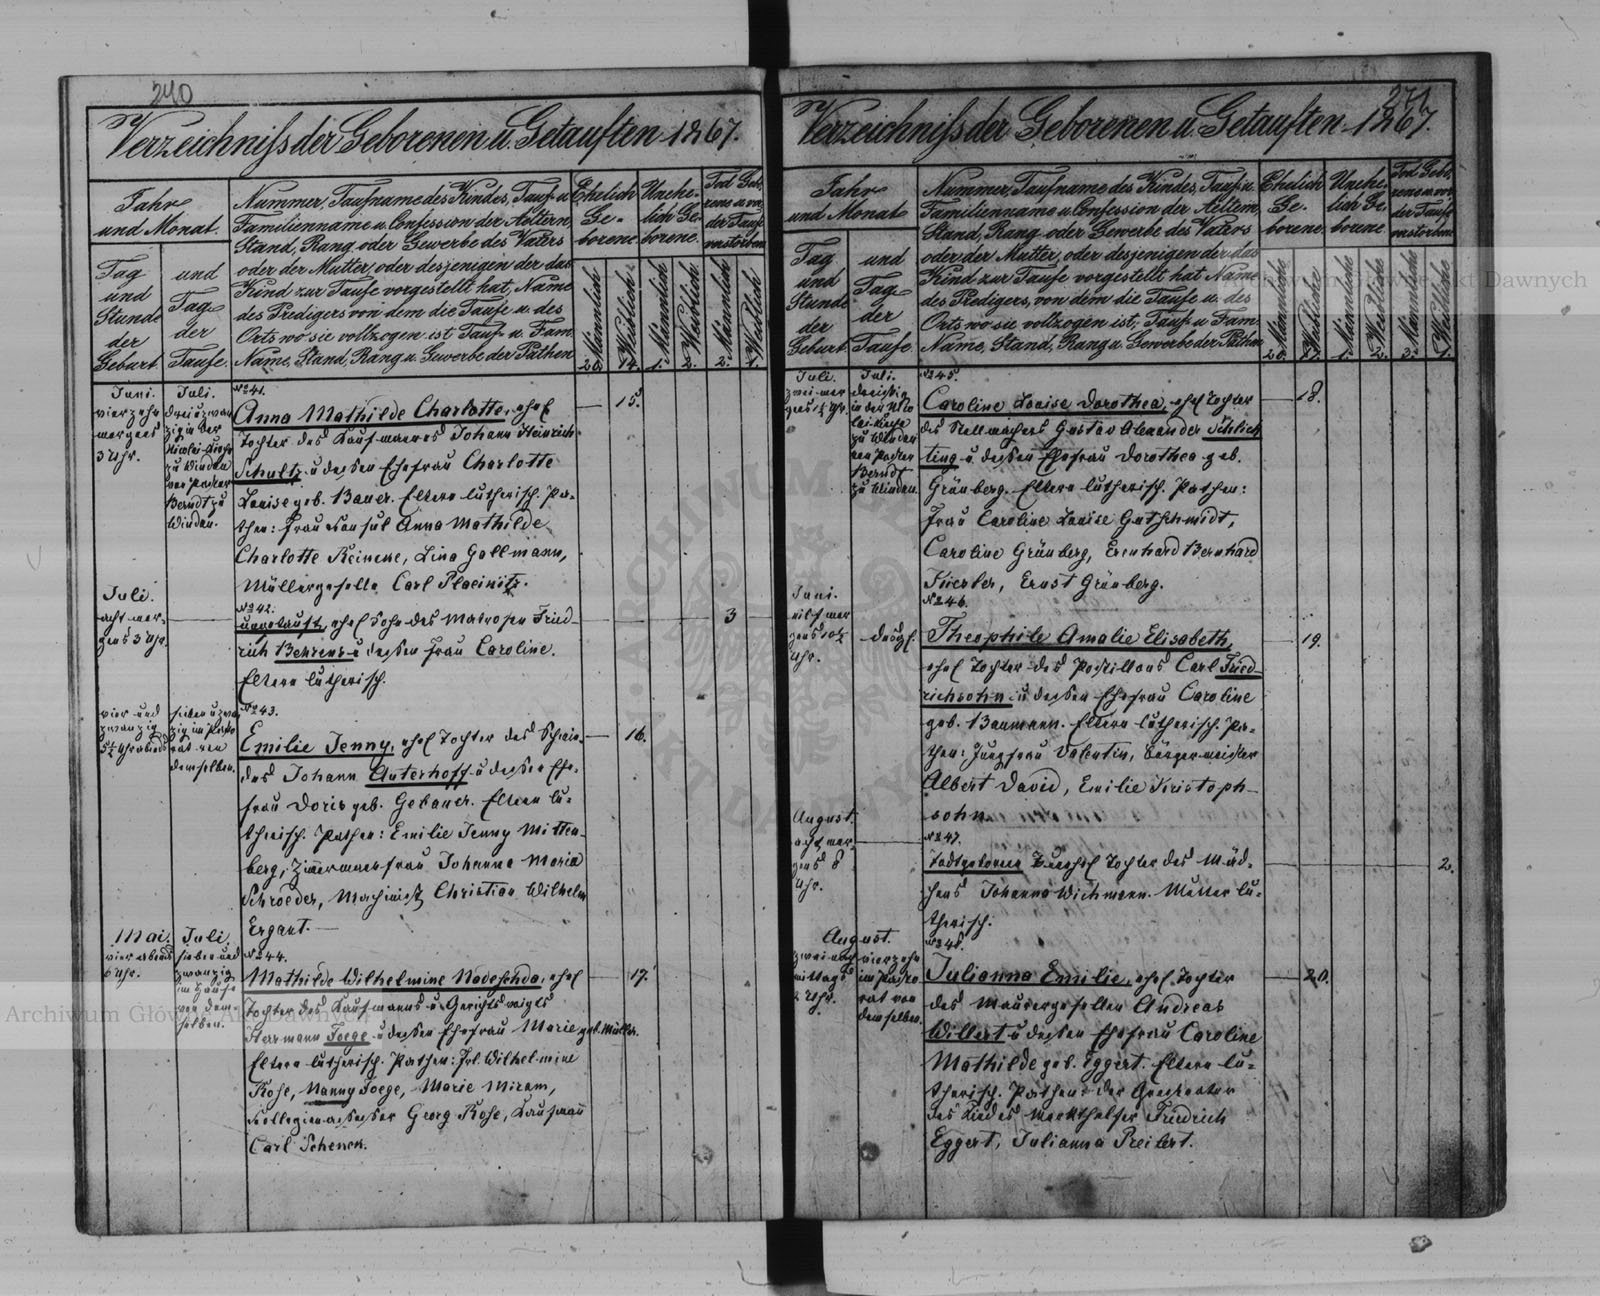 240
Verzeichniss der Geborenen u. Getauften 1867.
Jahr
und Monat.
Tag
und
Stunde
der
Geburt.
und
Tag
der
Taufe.
Nummer, Taufname des Kindes, Tauf- u.
Familienname u. Confession der Aeltern,
Stand, Rang oder Gewerbe des Vaters
oder der Mutter, oder desjenigen der das
Kind zur Taufe vorgestellt hat, Name
des Predigers von dem die Taufe u. des
Orts wo sie vollzogen ist, Tauf- u. Fam.
Name, Stand, Rang u. Gewerbe der Pathen
Ehelich
Ge-
borene
Unehe-
lich Ge-
borene.
Tod Geb.
rene u. vor
der Taufe
verstorbene
Männlich
Weiblich
Männlich
Weiblich
Männlich
Weiblich
20.
14.
1.
2.
2.
1.
Juni.
vierzehn
morgens
3 Uhr.
Juli.
drei u. zwan
zig in der
Nicolai-Kirche
zu Windau
von Pastor
Berndt zu
Windau.
No 41.
Anna Mathilde Charlotte, ehel
Tochter des Kaufmanns Johann Heinrich
Schultz u. dessen Ehefrau Charlotte
Louise geb. Bauer. Eltern lutherisch. Pa-
then: Frau Konsul Anna Mathilde
Charlotte Reinene, Lina Gallmann,
Müllergeselle Carl Placinitz.
15.
Juli.
acht mor-
gens 3 Uhr.
No 42.
ungetauft, ehel Sohn des Matrosen Fried-
rich Behrens u. dessen Frau Caroline.
Eltern lutherisch.
3
vier und
zwanzig
5½ Uhr abends
sieben u. zwan
zig im Pasto
rat von
demselben.
No 43.
Emilie Jenny, ehel Tochter des Schnei-
des Johann Auterhoff u. dessen Ehe-
frau Doris geb. Gebauer. Eltern lu-
therisch. Pathen: Emilie Jenny Mitten-
berg, Zimmermannsfrau Johanna Maria
Schroeder, Maschinist Christian Wilhelm
Ergant.
16.
Mai.
vier abends
6 Uhr.
Juli.
sieben und
zwanzig
im Hause
von dem-
selben.
No 44.
Mathilde Wilhelmine Nadeschda, ehel
Tochter des Kaufmanns u. Gerichtsvoigts
Herrmann Joege u. dessen Ehefrau Marie geb. Müller.
Eltern lutherisch. Pathen: Frl. Wilhelmine
Rohse, Nanny Joege, Marie Miram,
Kollegienassessor Georg Rohse, Kaufmann
Carl Schenck.
17.
241
Verzeichniss der Geborenen u. Getauften 1867.
Jahr
und Monat.
Tag
und
Stunde
der
Geburt.
und
Tag
der
Taufe.
Nummer, Taufname des Kindes, Tauf- u.
Familienname u. Confession der Aeltern,
Stand, Rang oder Gewerbe des Vaters
oder der Mutter, oder desjenigen der das
Kind zur Taufe vorgestellt hat, Name
des Predigers, von dem die Taufe u. des
Orts wo sie vollzogen ist, Tauf- u. Fam.
Name, Stand, Rang u. Gewerbe der Pathen
Ehelich
Ge-
borene.
Unehe-
lich Ge-
borene.
Tod Geb.
rene u. vor
der Taufe
verstorbene
Männliche
Weibliche
Männliche
Weibliche
Männliche
Weibliche
20.
17.
1.
2.
3.
1.
Juli.
zwei mor
gens Uhr.
Juli.
dreissig
in der Nico
lai-Kirche
zu Windau
von Pastor
Berndt
zu Windau.
No 45.
Caroline Louise Dorothea, ehel Tochter
des Stellmachers Gustav Alexander Schlich
ting u. dessen Ehefrau Dorothea geb.
Grünberg. Eltern lutherisch. Pathen:
Frau Caroline Louise Gutschmidt,
Caroline Grünberg, Bernhard
Ernst Grünberg.
18.
Juni.
eilf mor
gens 10½
Uhr.
desgl.
No 46.
Theophile Amalie Elisabeth,
ehel Tochter des Postillons Carl Fried-
richsohn u. dessen Ehefrau Caroline
geb. Baumann. Eltern lutherisch. Pa-
then: Jungfrau Valentin, Bürgermeister
Albert David, Emilie Kristoph-
sohn
19.
August.
acht mor-
gens 8
Uhr.
No 47.
todtgeborene unehel Tochter des Mäd-
chens Johanna Wichmann. Mutter lu-
therisch.
2.
August.
zwei nach
mittags
2 Uhr.
vierzehn
im Pasto
rat von
demselben.
No 48.
Julianna Emilie, ehel Tochter
des Maurergesellen Andreas
Willert u. dessen Ehefrau Caroline
Mathilde geb. Eggert. Eltern lu-
therisch. Pathen: der Grossvater
des Kindes Friedrich
Eggert, Julianna Preilert.
20.
Archiwum Główne Akt Dawnych
Archiwum Główne Akt Dawnych